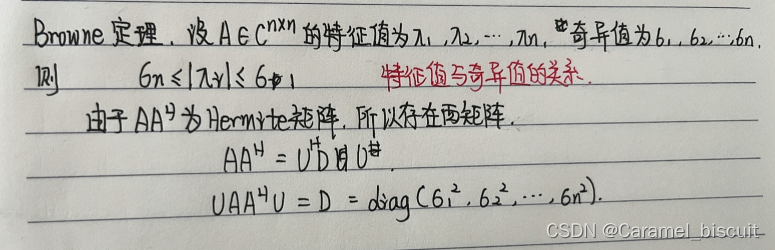 Browne 定理. 设 A∈Cⁿˣⁿ 的特征值为 λ1, λ2, ⋯, λn, 奇异值为 σ1, σ2, ⋯, σn.
则 σn ≤ |λi| ≤ σ1 特征值与奇异值的关系.
由于 AAᴴ 为 Hermite 矩阵. 所以存在酉矩阵.
AAᴴ = UᴴD U
UAAᴴU = D = diag(σ1², σ2², ⋯, σn²).
CSDN @Caramel_biscuit